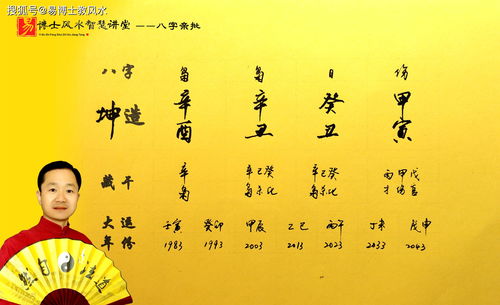 搜狐号@易博士救风水
易 博士风水智慧讲堂 ——八字亲批
八字 枭 枭 日 伤
坤造 辛 辛 癸 甲
酉 丑 丑 寅
藏干 辛 辛己癸 辛己癸 丙甲戊
枭 枭杀比 枭杀比 才伤官
大运 壬寅 癸卯 甲辰 乙巳 丙午 丁未 戊申
年份 1983 1993 2003 2013 2023 2033 2043
然自法道